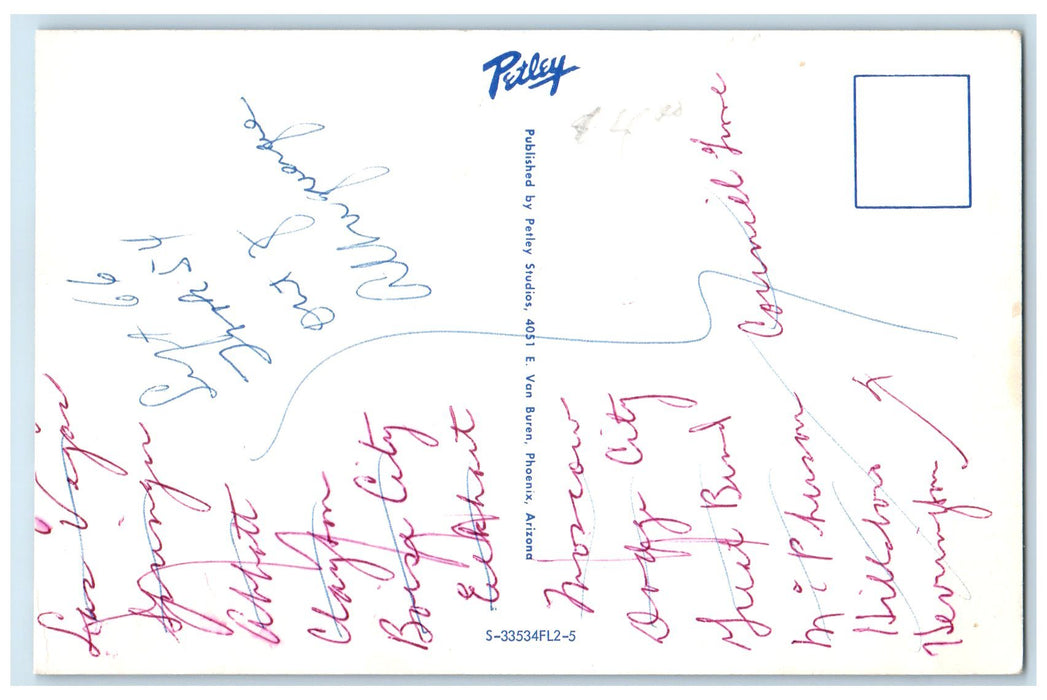 Petley
Published by Petley Studios, 4051 E. Van Buren, Phoenix, Arizona
S-33534FL2-5
Albuquerque
Oct 8
Sept 66
Las Vegas
Springer
Abbott
Clayton
Boise City
Elkhart
Moscow
Dodge City
Great Bend
McPherson
Hillsboro
Herington
Council Grove